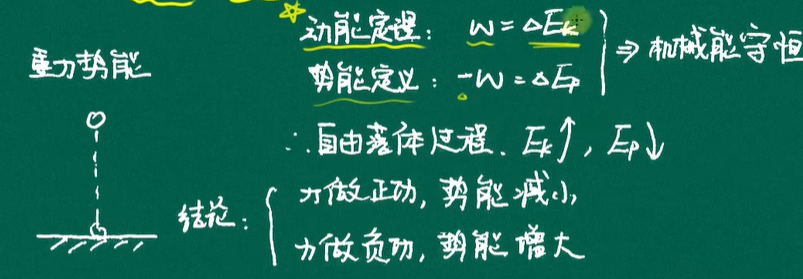 动能定理: W=ΔEk
势能定义: -W=ΔEp
⇒ 机械能守恒
重力势能
∴自由落体过程. Ek↑, Ep↓
结论:
力做正功, 势能减小,
力做负功, 势能增大